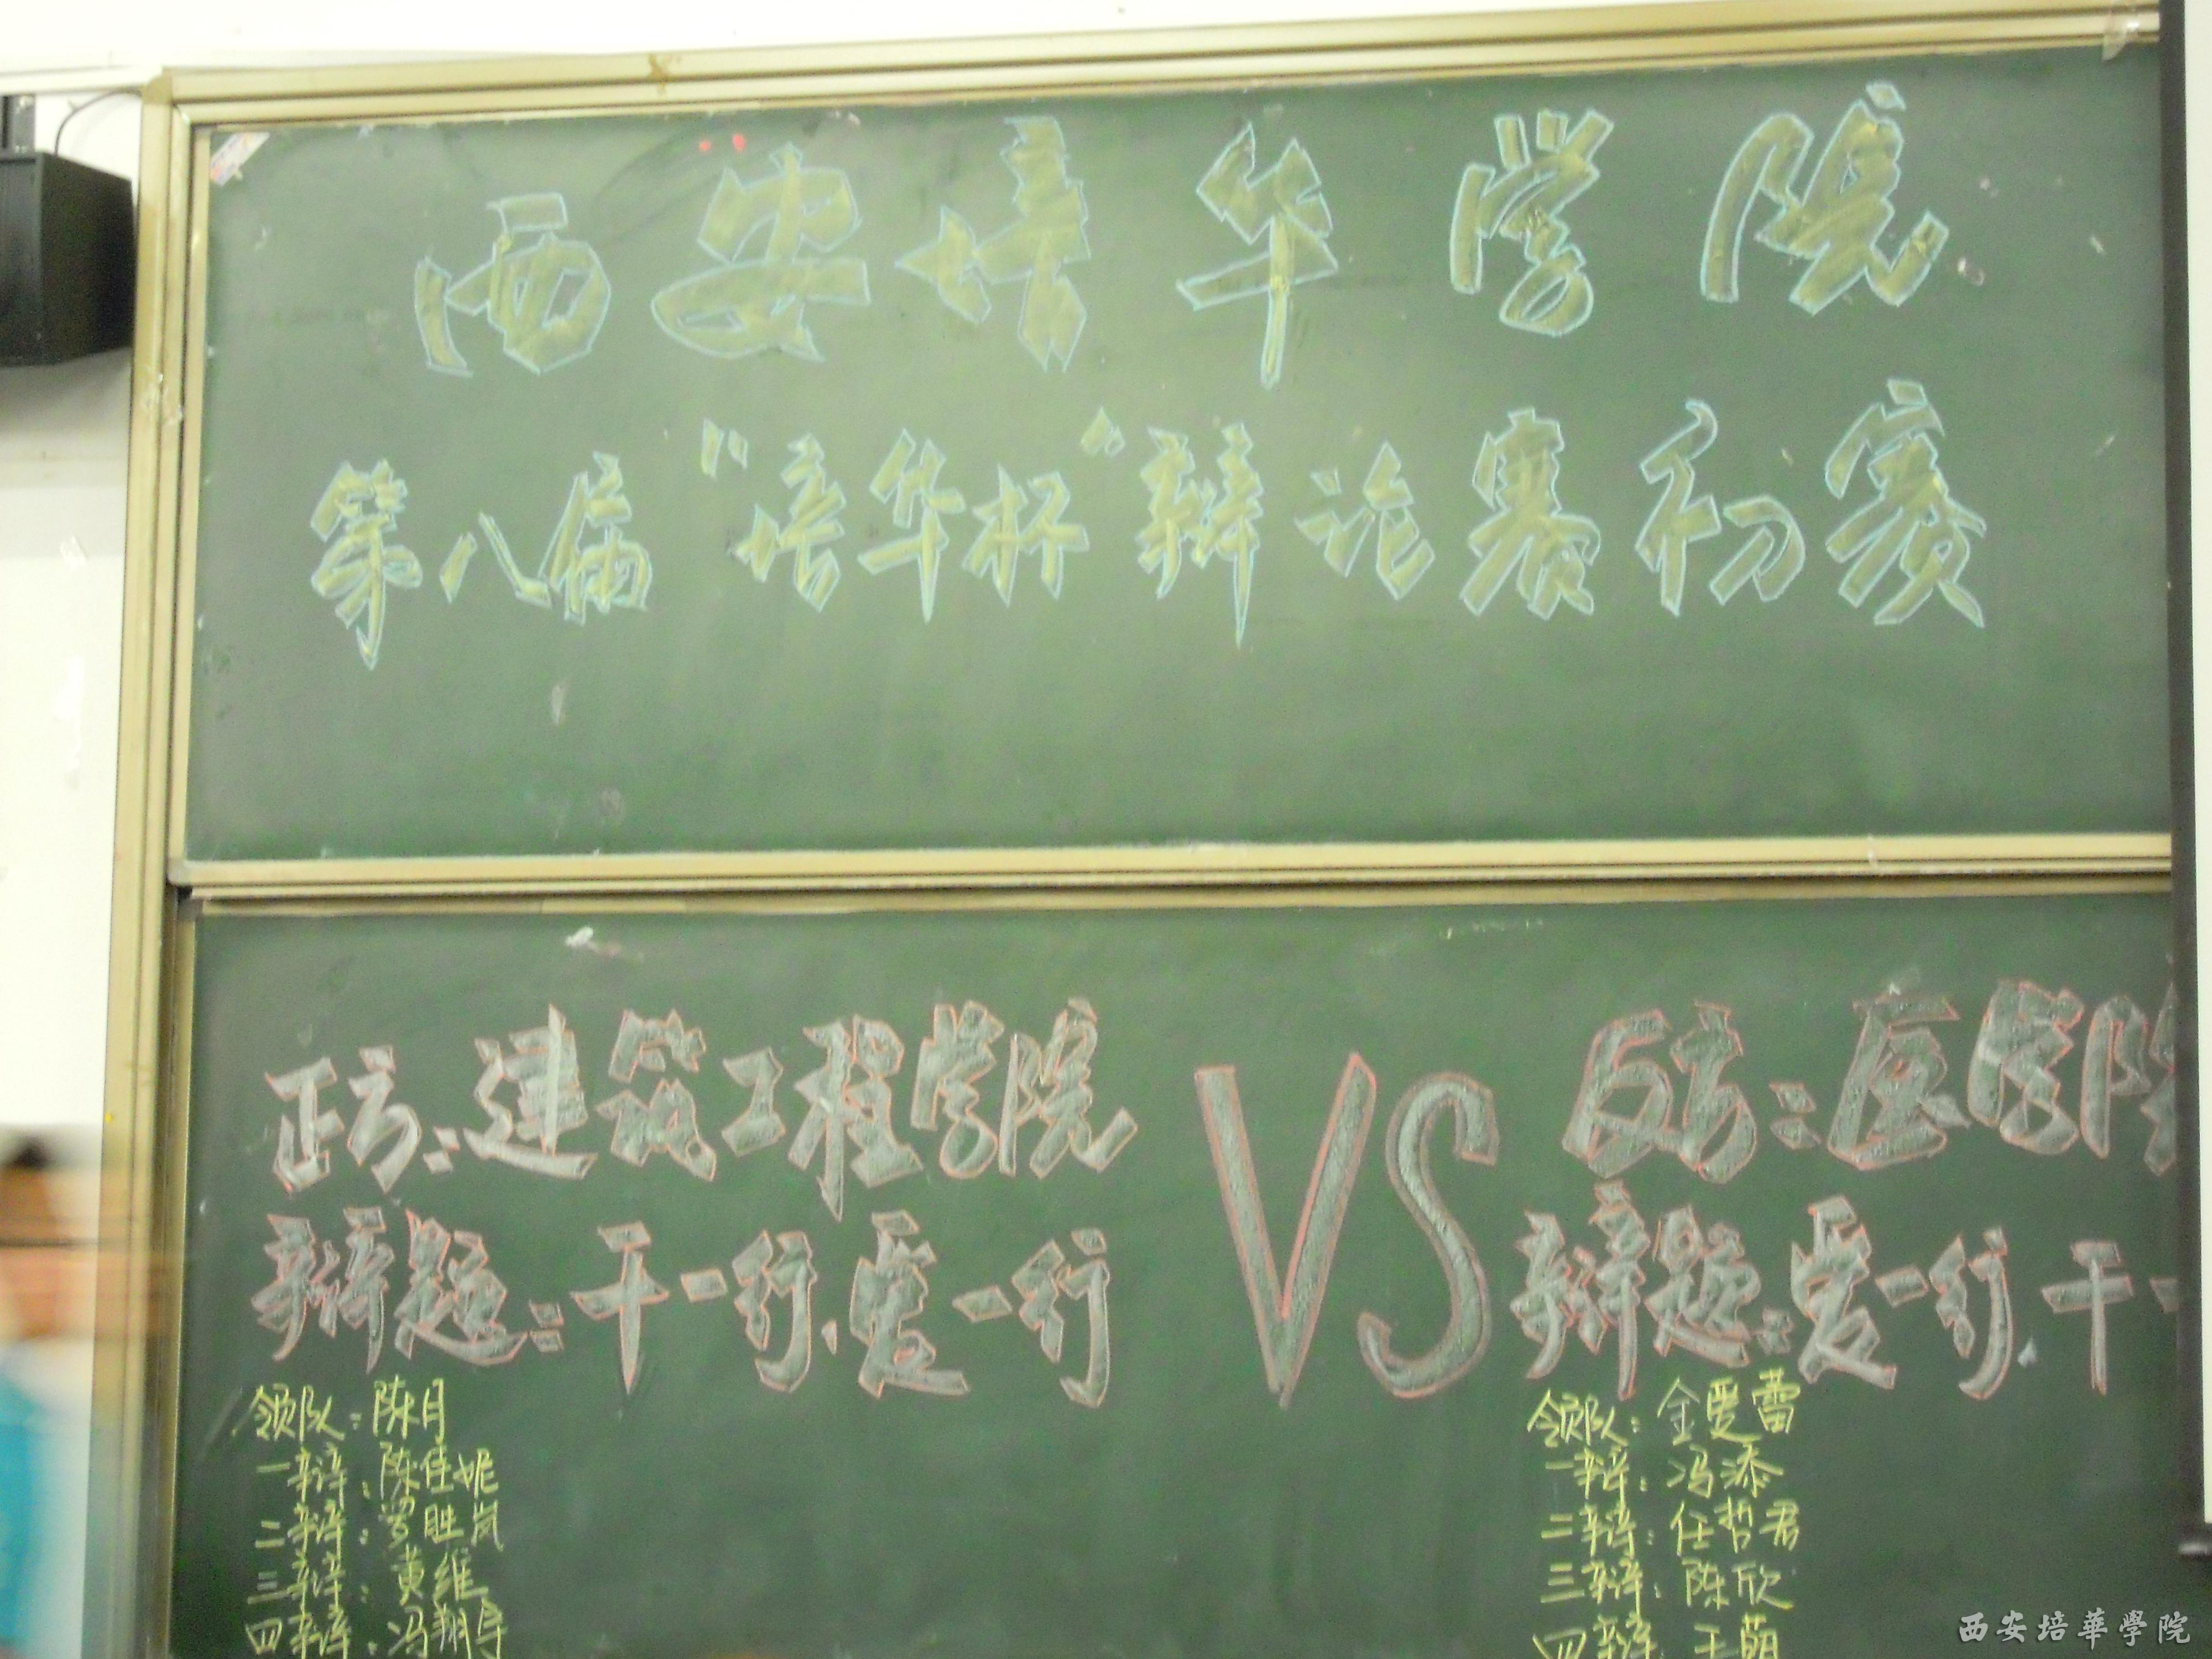 西安培华学院
第八届"培华杯"辩论赛初赛
正方:建筑工程学院
辩题:干一行,爱一行
领队:陈月
一辩:陈佳妮
二辩:罗胜岚
三辩:黄维
四辩:冯翔宇
VS
反方:医学院
辩题:爱一行,干一
领队:金雯蕾
一辩:冯添
二辩:任哲君
三辩:陈欣
四辩 王萌
西安培華學院